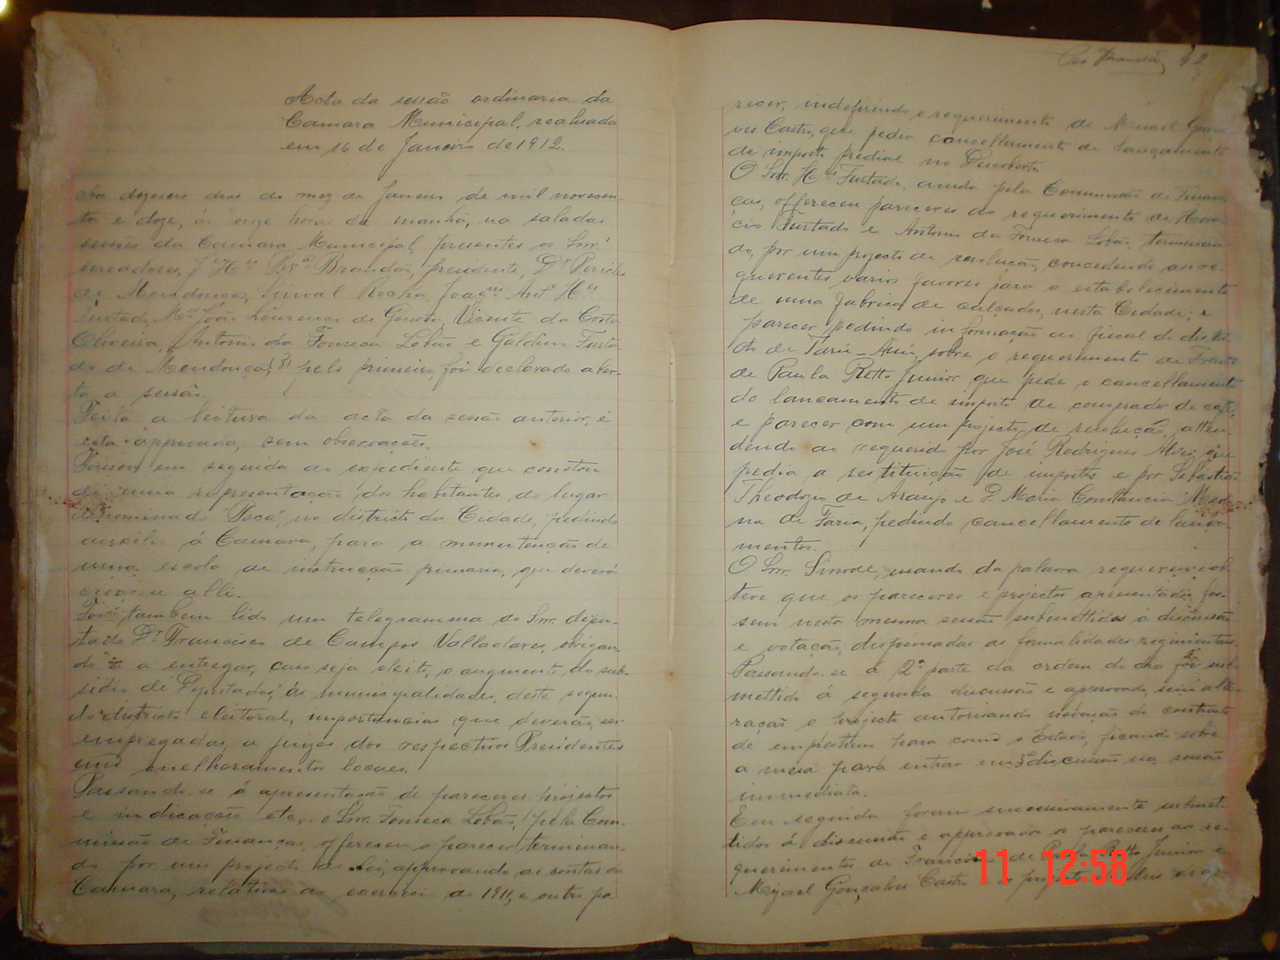 Acta da sessão ordinaria da
Camara Municipal, realisada
em 16 de Janeiro de 1912.
Aos dezeseis dias do mez de Janeiro de mil novesen-
to e doze, ás onze horas da manhã, na sala das
sessões da Camara Municipal, presentes os Snrs.
vereadores, Brandão, presidente, Dr. Pericles
de Mendonça, Sinval Rocha, Joaqm. Anto. Hes.
Furtado, Mel. João Lourenço de Vicente da Costa
Oliveira, Antonio da Fonseca Lobão e Galdino Furta-
do de Mendonça, (8) pelo primeiro, foi declarado aber-
ta a sessão.
Feita a leitura da acta da sessão anterior, é
esta approvada, sem observações.
Passou em seguida ao expediente que constou
de uma representação dos habitantes do lugar
denominado no districto da Cidade, pedindo
auxilio á Camara, para a manutenção de
uma escola de instrucção primaria, que deverá
crear-se alli.
Foi tambem lido um telegramma do Snr. depu-
tado Dr. Francisco de Campos Valladares, obrigan-
do se a entregar, caso seja eleito, o augmento do sub-
sidio de Deputado, ás municipalidades, deste segun-
do districto eleitoral, importancias que deverão, ser
empregadas, a juizo dos respectivos Presidentes
em melhoramentos locaes.
Passando-se á apresentação de pareceres projectos
e indicações etc., o Snr. Fonseca Lobão, pela Com-
missão de Finanças, offereceu o parecer terminan-
do por um projecto de Lei, approvando as contas da
Camara, relativas ao exercicio de 1911, e outro pa-
42
recer, indeferindo o requerimento de Misael Gonçal-
ves Castro, que pedia cancellamento de lançamento
de imposto predial no Descoberto.
O Snr. Hes. Furtado, ainda pela Commissão de Finan-
ças, offereceu pareceres ao requerimento de Hora-
cio Furtado e Antonio da Fonseca Lobão, terminan-
do, por um projecto de resolução, concedendo aos re-
querentes varios favores para o estabelecimento
de uma fabrica de calçados, nesta Cidade; e
parecer pedindo informação ao fiscal do distri-
cto de sobre o requerimento de Franco.
de Paula Retto Junior que pede o cancellamento
do lançamento de imposto de comprador de café;
e parecer com um projecto de resolução, atten-
dendo ao requerido por José Rodrigues Alves, que
pedia a restituição de impostos e por Sebastião
Theodozio de Araujo e D. Maria Constancia
na de Faria, pedindo cancellamento de lança-
mentos.
O Snr. usando da palavra requereu e ob-
teve que os pareceres e projectos apresentados, fos-
sem nesta mesma sessão submettidos á discussão
e votação, dispensadas as formalidades regimentaes.
Passando-se á 2ª parte da ordem do dia foi sub-
mettido á segunda discussão e approvado, sem alte-
ração o projecto autorisando inovação do contracto
de emprestimo para com o Estado, ficando sobre
a mesa para entrar em 3ª discussão na sessão
immediata.
Em seguida foram successivamente submet-
tidos á discussão e approvados os pareceres aos re-
querimentos de Francisco de Paula Retto Junior e
Misael Gonçalves Castro
11 12:58